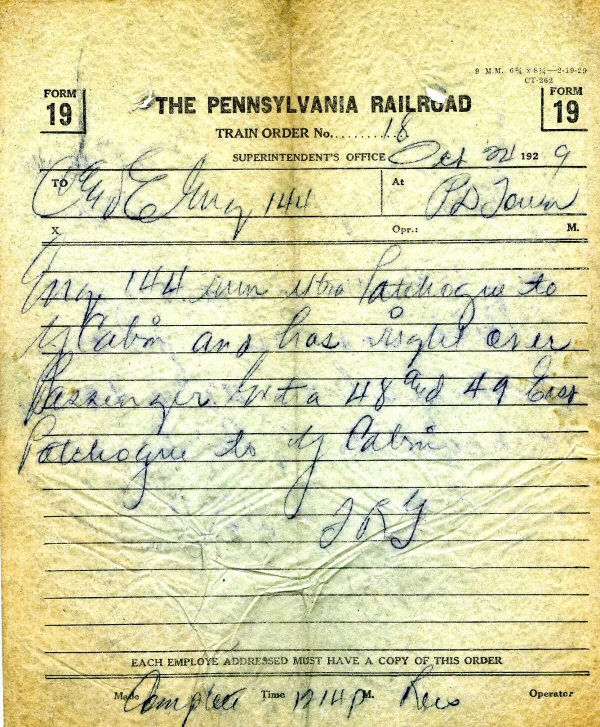 9 M.M. 6¾ x 8¼—2-19-29
CT-262
FORM 19 THE PENNSYLVANIA RAILROAD FORM 19
TRAIN ORDER No. 18
SUPERINTENDENT'S OFFICE Oct 24 1929
TO C & E Eng 144 At PD Tower
X Opr.: M.
Eng 144 run extra Patchogue to
Y Cabin and has right over
Passenger Extra 48 and 49 East
Patchogue to Y Cabin
EACH EMPLOYE ADDRESSED MUST HAVE A COPY OF THIS ORDER
Made Complete Time 1214 P M. Operator